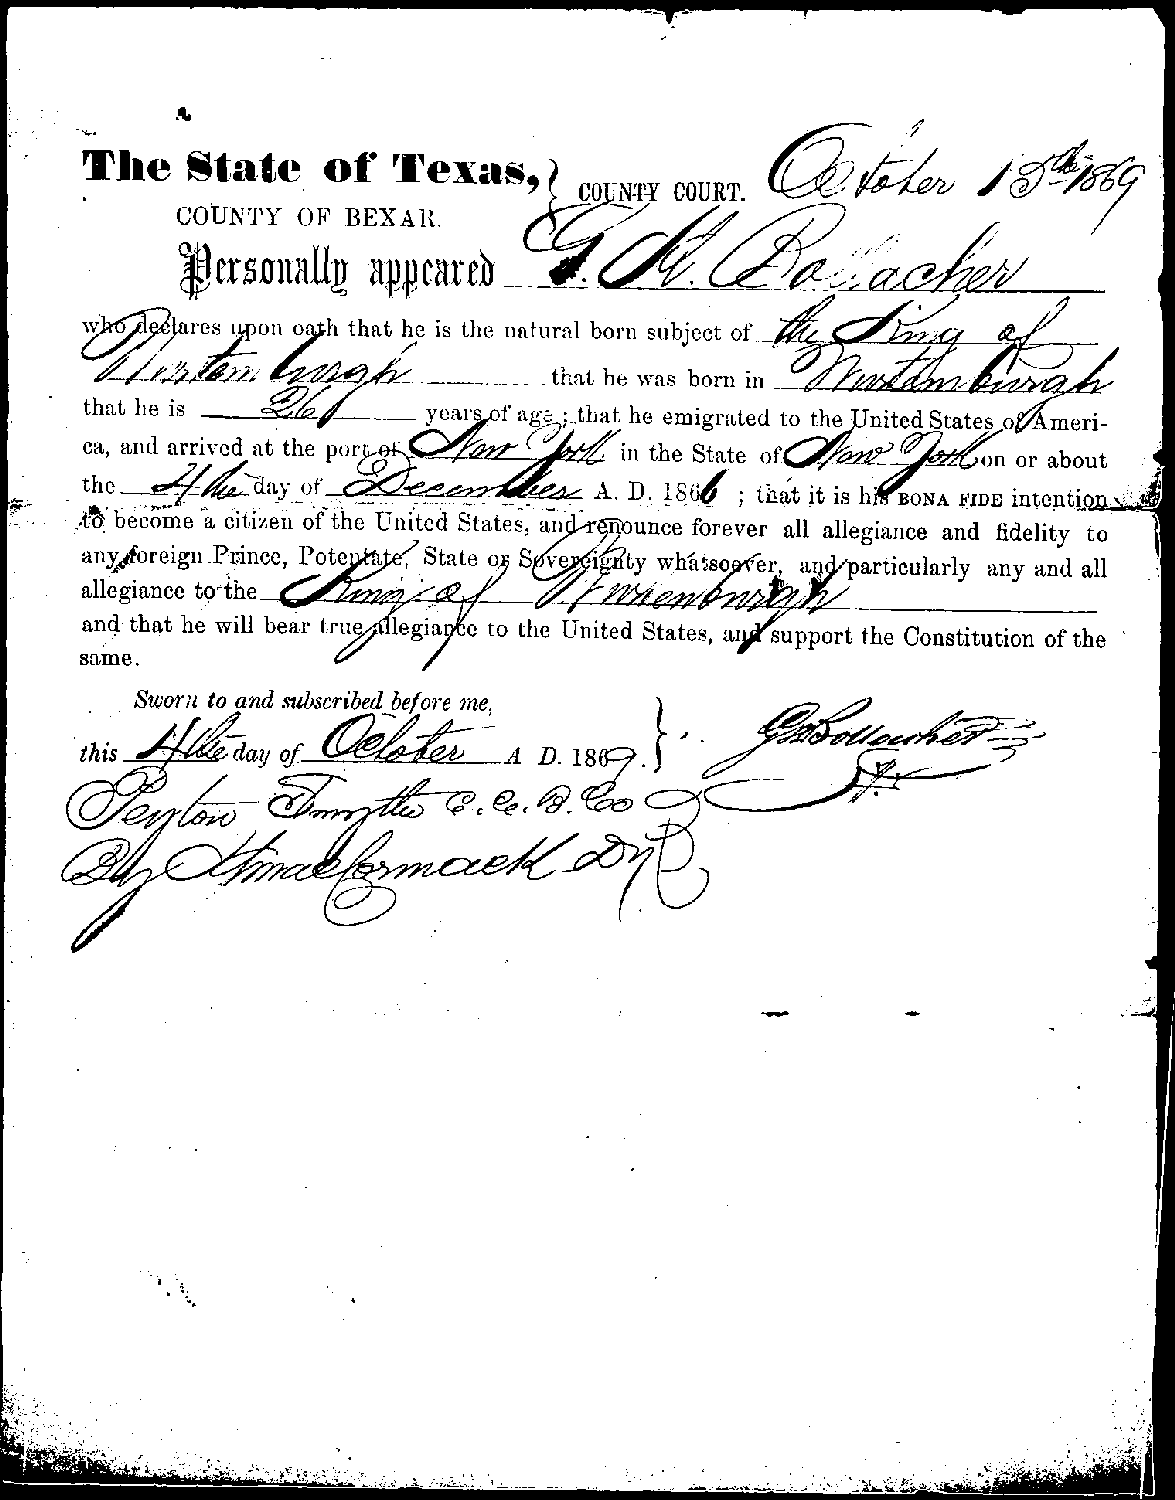 The State of Texas, } COUNTY COURT. October 15th 1869
COUNTY OF BEXAR.
Personally appeared G. A. Bollacher
who declares upon oath that he is the natural born subject of the King of
Wirtemburgh that he was born in Wirtemburgh
that he is 26 years of age; that he emigrated to the United States of Ameri-
ca, and arrived at the port of New York in the State of New York on or about
the 4the day of December A. D. 1866; that it is his BONA FIDE intention
to become a citizen of the United States, and renounce forever all allegiance and fidelity to
any foreign Prince, Potentate, State or Sovereignty whatsoever, and particularly any and all
allegiance to the King of Wirtenburgh
and that he will bear true allegiance to the United States, and support the Constitution of the
same.
Sworn to and subscribed before me,
this 4the day of October A D. 1869. } Bollacher
Peyton Smythe C. C. B. Co
By MacCormack Dy